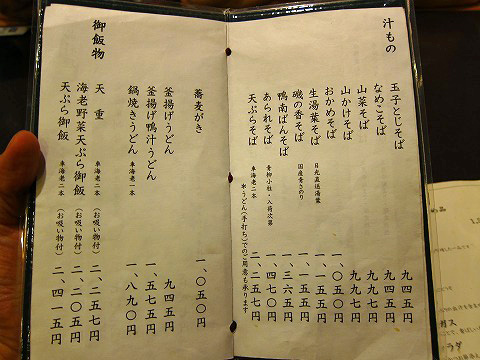 汁もの
玉子とじそば 九四五円
なめこそば 九四五円
山菜そば 九九七円
山かけそば 九九七円
おかめそば 一、〇五〇円
生湯葉そば 日光直送湯葉 一、一五五円
磯の香そば 国産青さのり 一、一五五円
鴨南ばんそば 一、三六五円
あられそば 青柳小柱・入荷次第 一、四七〇円
天ぷらそば 車海老二本 二、二五七円
※うどん(手打ち)でのご用意も承ります
蕎麦がき 一、〇五〇円
釜揚げうどん 九四五円
釜揚げ鴨汁うどん 一、五七五円
鍋焼きうどん 車海老一本 一、八九〇円
御飯物
天重 車海老二本 (お吸い物付) 二、二五七円
海老野菜天ぷら御飯 車海老二本 (お吸い物付) 二、二〇五円
天ぷら御飯 車海老二本 (お吸い物付) 二、四一五円
ガス
ラダ